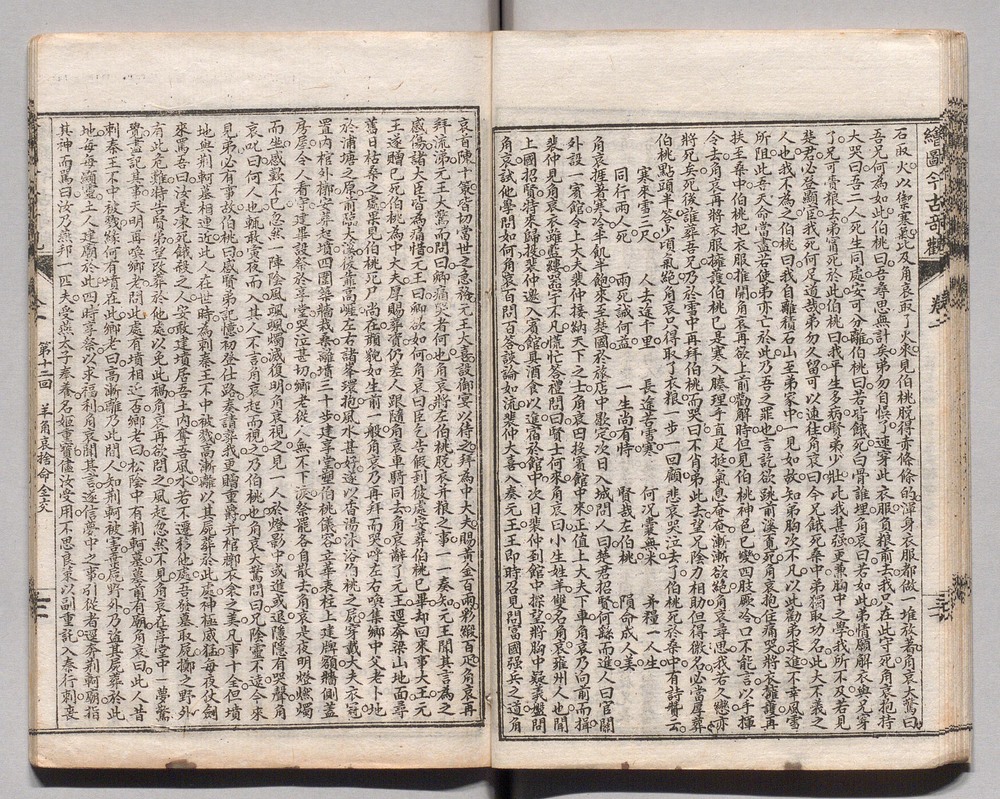 繪圖今古奇觀
石取火以御寒比及角哀取了火來見伯桃脫得赤條條的渾身衣服都做一堆放着角哀大驚曰
吾兄何為如此伯桃曰吾尋思無計矣弟勿自悞了速穿此衣服負粮前去我只在此守死角哀抱持
大哭曰吾二人死生同處安可分離伯桃曰若皆餓死白骨誰埋角哀曰若如此弟情願解衣與兄穿
了兄可賫粮去弟寧死於此伯桃曰我平生多病賢弟少壯比我甚強更兼胸中之學我所不及若見
楚君必登顯宦我死何足道哉弟勿久留可以速往角哀曰今兄餓死桑中弟獨取功名此大不義之
人也我不為之伯桃曰我自離積石山至弟家中一見如故知弟胸次不凡以此勸弟求進不幸風雪
所阻此吾天命當盡若使弟亦亡於此乃吾之罪也言訖欲跳前溪覓死角哀抱住痛哭將衣擁護再
扶至桑中伯桃把衣服推開角哀再欲上前勸解時但見伯桃神色已變四肢厥冷口不能言以手揮
令去角哀再將衣服擁護伯桃已是寒入腠理手直足挺氣息奄奄漸漸欲絕角哀尋思我若久戀亦
將死矣死後誰葬吾兄乃於雪中再拜伯桃而哭曰不肖弟此去望兄陰力相助但得微名必當厚葬
伯桃點頭半答少頃氣絕角哀只得取了衣粮一步一回顧悲哀哭泣去了伯桃死於桑中有詩贊云
寒來雪三尺　人去途千里　長途苦雪寒　何況囊無米　并糧一人生
同行兩人死　兩死誠何益　一生尚有恃　賢哉左伯桃　隕命成人美
角哀捱著寒冷半飢半飽來至楚國於旅店中歇定次日入城問人曰楚君招賢何繇而進人曰宮門
外設一賓館令上大夫裴仲接納天下之士角哀逕投賓館前來正值上大夫下車角哀乃向前而揖
裴仲見角哀衣雖藍縷器宇不凡慌忙答禮問曰賢士何來角哀曰小生姓羊雙名角哀雍州人也聞
上國招賢特來歸投裴仲邀入賓館具酒食以進宿於館中次日裴仲到館中探望將胸中疑義盤問
角哀試他學問如何角哀百問百答談論如流裴仲大喜入奏元王王即時召見問富國強兵之道角
哀首陳十策皆切當世之急務元王大喜設御宴以待之拜為中大夫賜黃金百兩彩緞百疋角哀再
拜流涕元王大驚而問曰卿痛哭者何也角哀將左伯桃脫衣并粮之事一一奏知元王聞其言為之
感傷諸大臣皆為痛惜元王曰卿欲如何角哀曰臣乞告假到彼處安葬伯桃已畢却回來事大王元
王遂贈已死伯桃為中大夫厚賜葬資仍差人跟隨角哀車騎同去角哀辭了元王逕奔梁山地面尋
舊日枯桑之處果見伯桃死尸尚在顏貌如生前一般角哀乃再拜而哭呼左右喚集鄉中父老卜地
於浦塘之原前臨大溪後靠高崖左右諸峯環抱風水甚好遂以香湯沐浴伯桃之屍穿戴大夫衣冠
置內棺外椁安葬起墳四圍築牆栽樹離墳三十步建享堂塑伯桃儀容立華表柱上建牌額牆側蓋
房屋令人看守建畢設祭於享堂哭泣甚切鄉老從人無不下淚祭罷各自散去角哀是夜明燈燃燭
而坐感歎不已忽然一陣陰風颯颯燭滅復明角哀視之見一人於燈影中或進或退隱隱有哭聲角
哀叱曰何人也輒敢夤夜而入其人不言角哀起而視之乃伯桃也角哀大驚問曰兄陰靈不遠今來
見弟必有事故伯桃曰感賢弟記憶初登仕路奏請葬我更贈重爵并棺椁衣衾之美凡事十全但墳
地與荊軻墓相連近此人在世時為刺秦王不中被戮高漸離以其屍葬於此處神極威猛每夜仗劍
來罵吾曰汝是凍死餓殺之人安敢建墳居吾上肩奪吾風水若不遷移他處吾發墓取屍擲之野外
有此危難特告賢弟望改葬於他處以免此禍角哀再欲問之風起忽然不見角哀在享堂中一夢驚
覺盡記其事天明再喚鄉老問此處有墳相近否鄉老曰松陰中有荊軻墓墓前有廟角哀曰此人昔
刺秦王不中被殺緣何有墳在此鄉老曰高漸離乃此間人知荊軻被害棄屍野外乃盜其屍葬於此
地每每顯靈土人建廟於此四時享祭以求福利角哀聞其言遂信夢中之事引從者逕奔荊軻廟指
其神而罵曰汝乃燕邦一匹夫受燕太子奉養名姬重寶儘汝受用不思良策以副重託入秦行刺喪
第十二回　羊角哀捨命全交